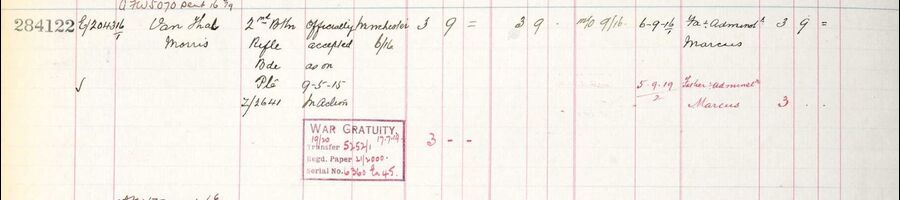 AFW5070 sent 16/9/19
284122 E/204316/1 Van Thal 2nd Bttn Officially Winchester 3 9 = 3 9 . 9/16 6-9-16 Fa & Adminst 3 9 =
Morris Rifle accepted 6/16 Marcus
Bde as on
Pte 9-5-15 5-9-19 Father & Adminst
Z/2641 In action 2 Marcus 3 . .
WAR GRATUITY
19/20 17.7.19
Transfer 5252/1 3 - -
Regd. Paper 21/2000.
Serial No. 6360 45.